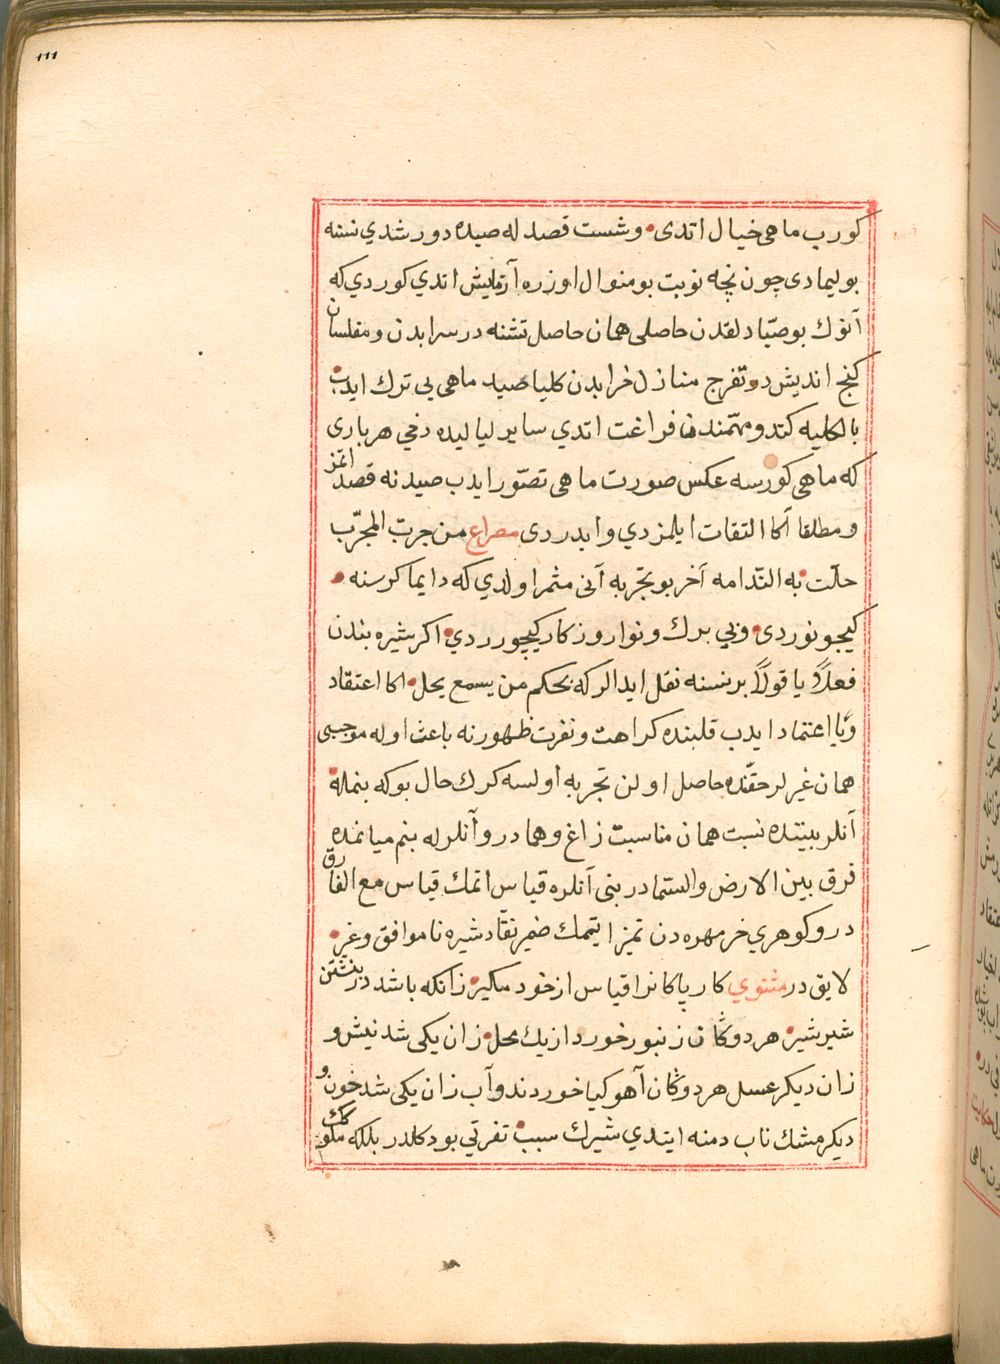 ١١١
كورب ماهى خيال اتدى وشست قصد له صيده دورشدي نسنه
بوليمادى چون نچه نوبت بومنوال اوزره آزمايش اتدي كوردي كه
آنوك بوصيّادلقدن حاصلى همان حاصل تشنه در سرابدن ومفلسان
كنج انديش در تفرج منازل خرابدن كليا صيد ماهى يى ترك ايدب
بالكليه كندومهمّندن فراغت اتدي ساير لياليده دخي هربارى
كه ماهى كورسه عكس صورت ماهى تصوّر ايدب صيدنه قصد اتمز
ومطلقا اكا التفات ايلمزدي وايدردى مصراع من جرب المجرّب
حلّت به النّدامه آخر بو تجربه آنى مثمر اولدي كه دايما كرسنه
كيجونوردى وبي برك ونوا روزكار كيچورردي اكر شيره بندن
فعلاً يا قولاً برنسنه نقل ايدالر كه بحكم من يسمع يخل اكا اعتقاد
ويا اعتماد ايدب قلبنده كراهت ونفرت ظهورنه باعث اوله موجبى
همان غيرلر حقّنده حاصل اولن تجربه اولسه كرك حال بوكه بنمله
آنلر بيننده نسبت همان مناسبت زاغ وهما در وآنلرله بنم ميانمده
فرق بين الارض والسّما در بنى آنلره قياس اتمك قياس مع الفارق
در وكوهرى خرمهره دن تميز ايتمك ضمير نقّاد شيره ناموافق وغير
لايق در مثنوي كار پاكانرا قياس از خود مكير زانكه باشد در نبشتن
شير شير هر دو كان زنبور خورد از يك محل زان يكى شد نيش و
زان ديكر عسل هر دو كان آهو كيا خوردند وآب زان يكى شد خون و
ديكر مشك ناب دمنه ايتدي شيرك سبب نفرتي بودكلدر بلكه ملوك